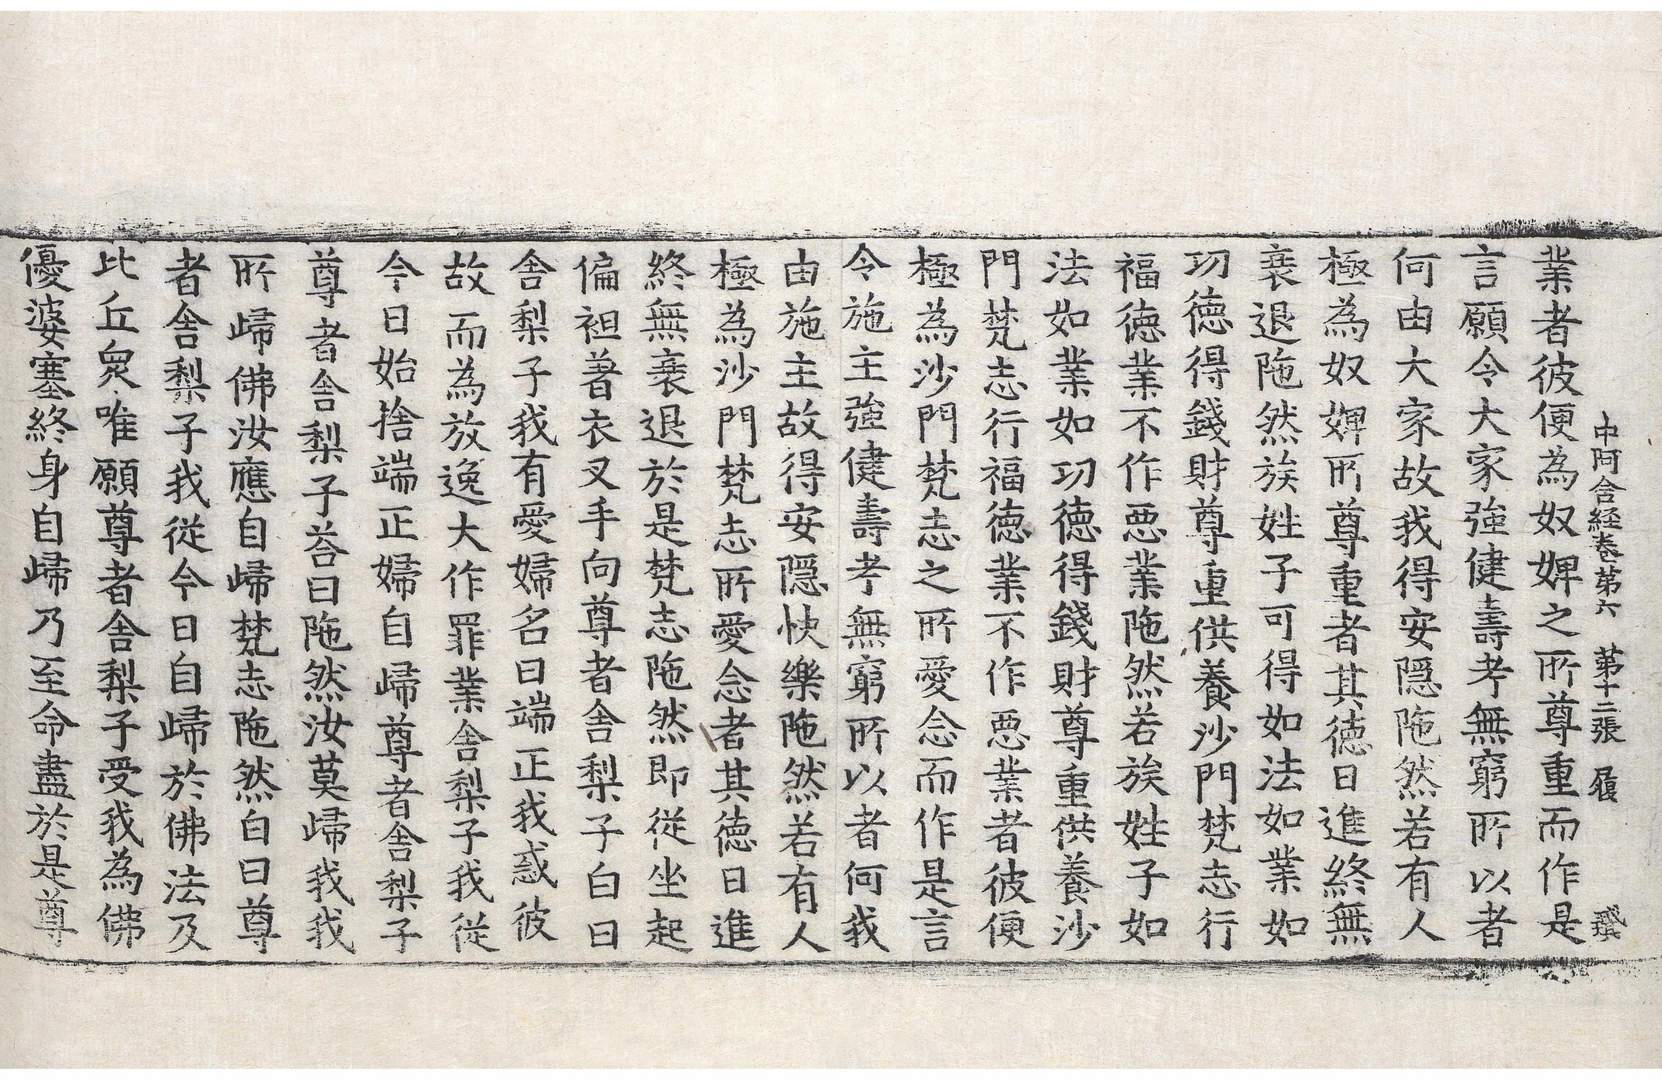 中阿含経卷苐六　苐十二張　履
業者彼便為奴婢之所尊重而作是
言願令大家強健壽考無窮所以者
何由大家故我得安隱陁然若有人
極為奴婢所尊重者其德日進終無
衰退陁然族姓子可得如法如業如
功德得錢財尊重供養沙門梵志行
福德業不作惡業陁然若族姓子如
法如業如功德得錢財尊重供養沙
門梵志行福德業不作惡業者彼便
極為沙門梵志之所愛念而作是言
令施主強健壽考無窮所以者何我
由施主故得安隱快樂陁然若有人
極為沙門梵志所愛念者其德日進
終無衰退於是梵志陁然即從坐起
偏袒著衣叉手向尊者舎梨子白曰
舎梨子我有愛婦名曰端正我惑彼
故而為放逸大作罪業舎梨子我從
今日始捨端正婦自歸尊者舎梨子
尊者舎梨子荅曰陁然汝莫歸我我
所歸佛汝應自歸梵志陁然白曰尊
者舎梨子我從今日自歸於佛法及
比丘衆唯願尊者舎梨子受我為佛
優婆塞終身自歸乃至命盡於是尊